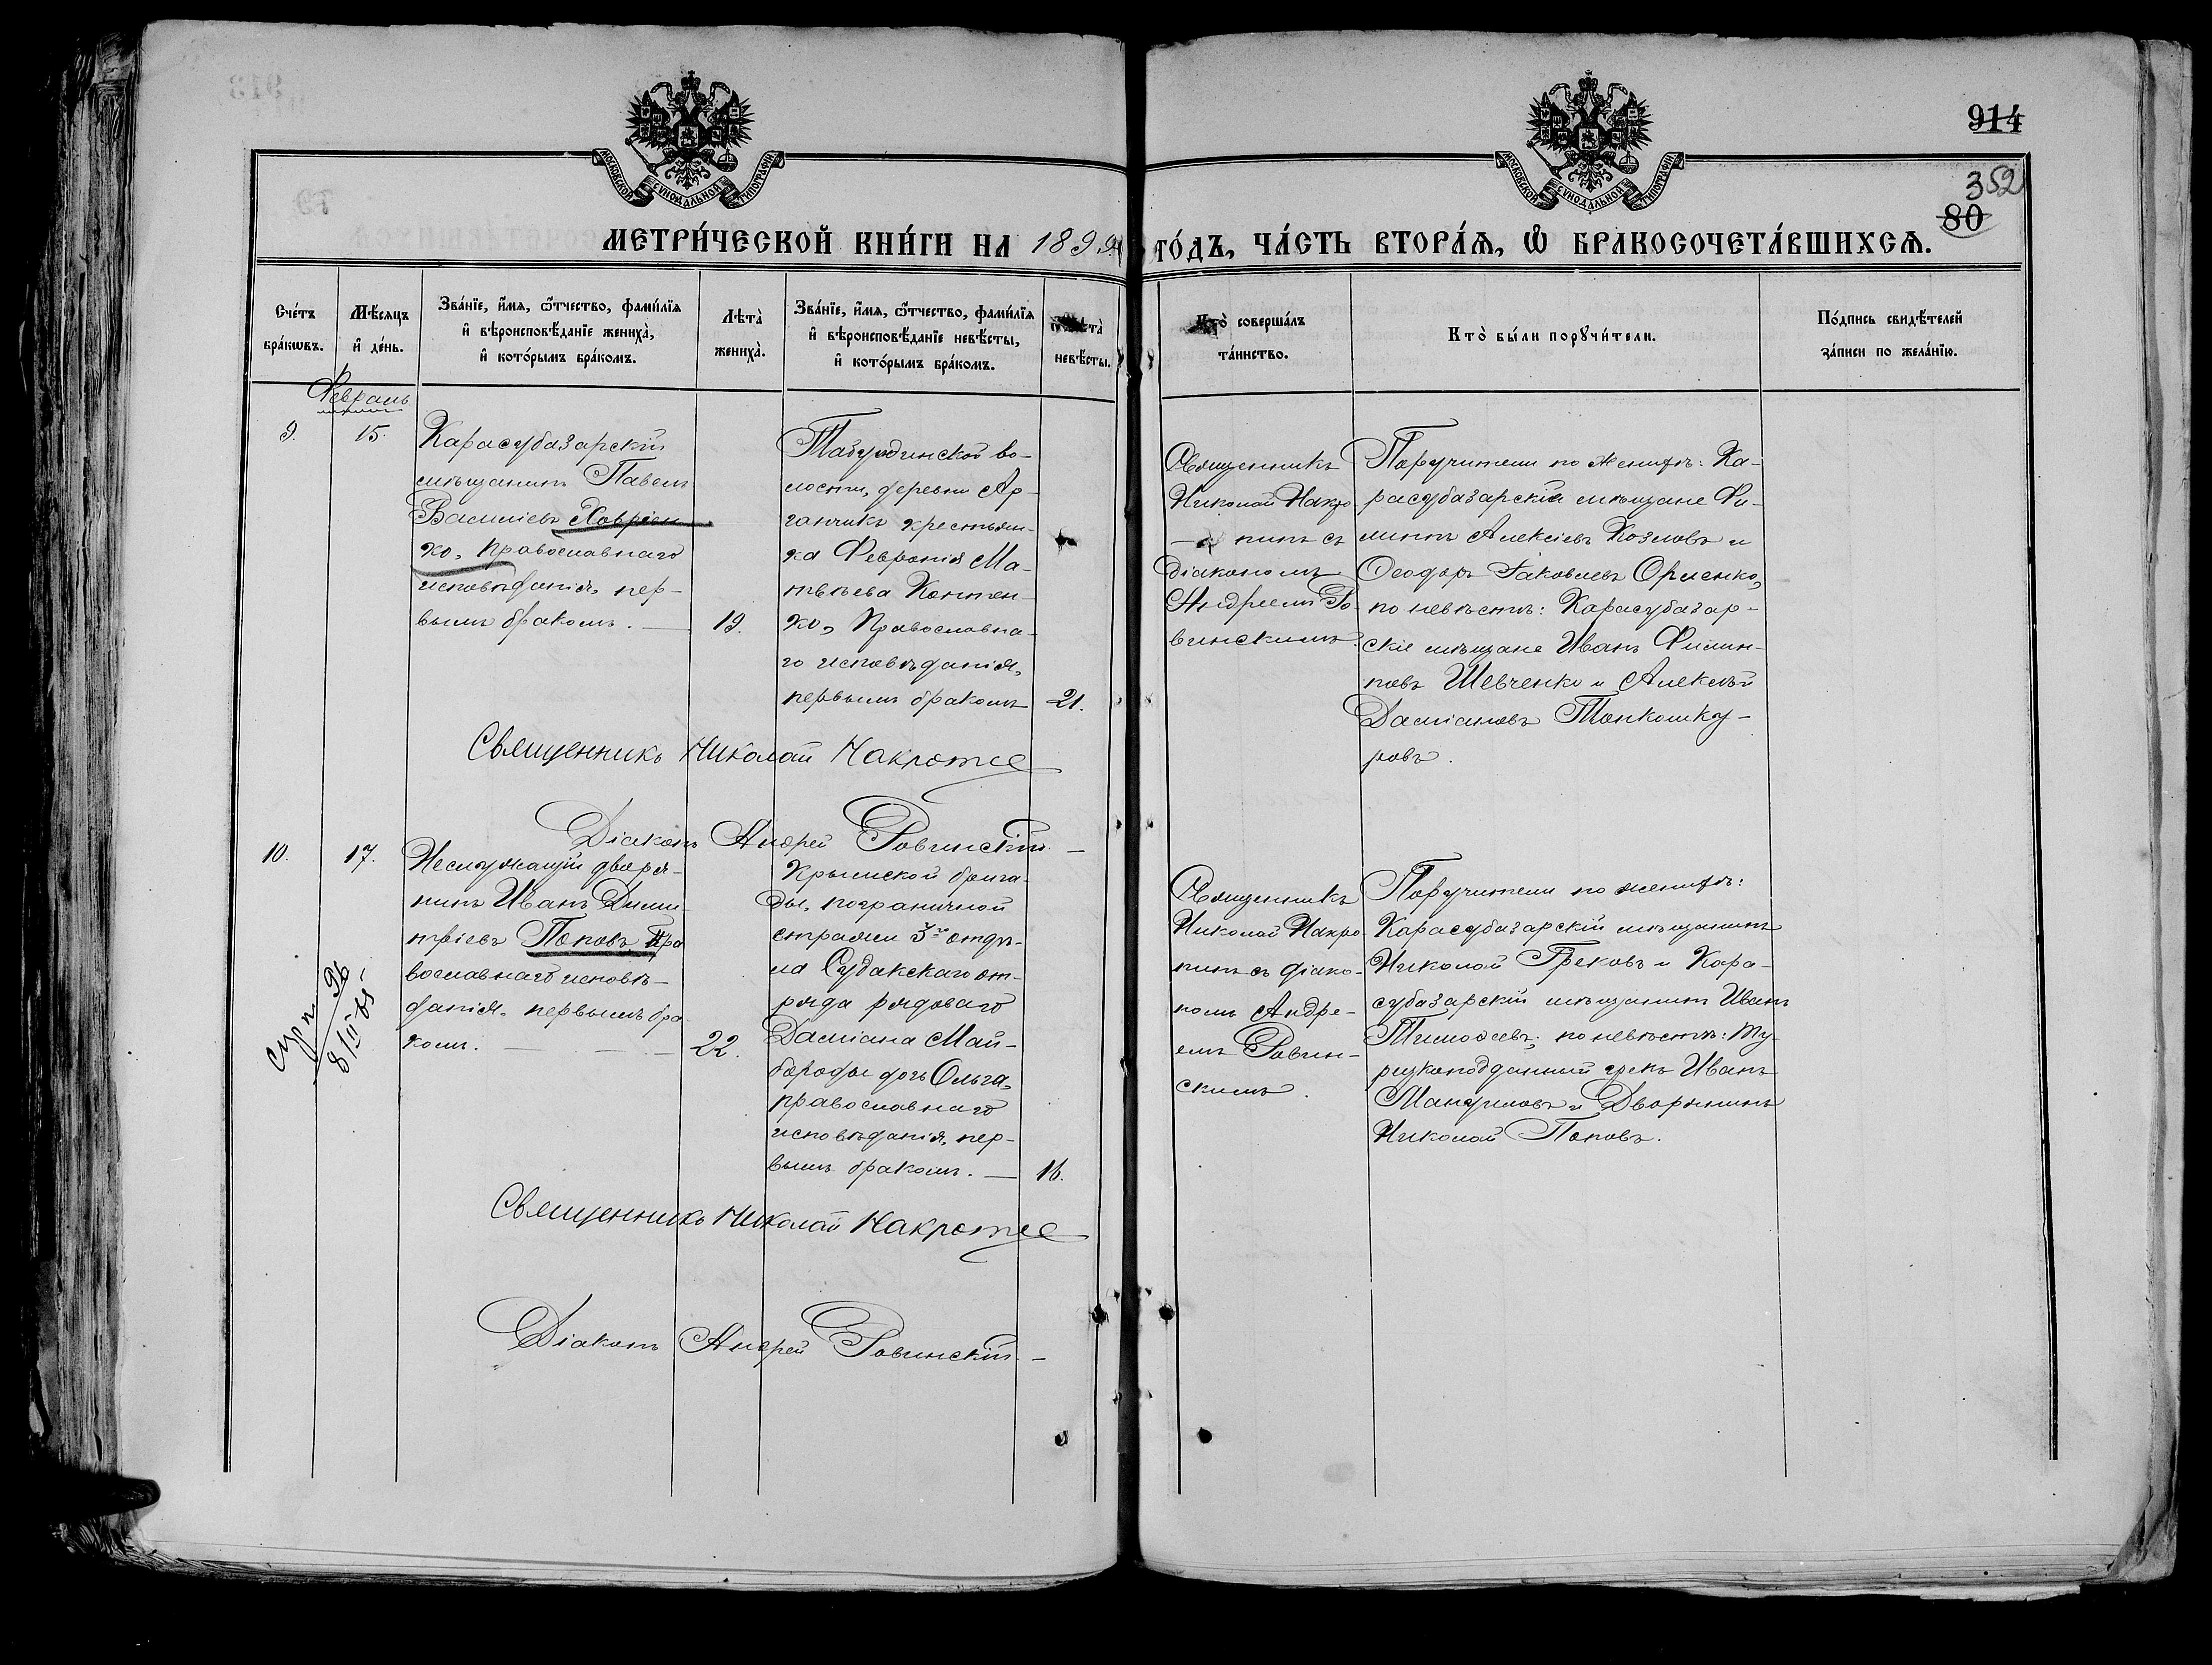 914
352
80
МОСКОВСКОЙ СѴНОДАЛЬНОЙ ТИПОГРАФІИ
МОСКОВСКОЙ СѴНОДАЛЬНОЙ ТИПОГРАФІИ
МЕТРИ́ЧЕСКОЙ КНИ́ГИ НА 1899 ГО́ДЪ, ЧА́СТЬ ВТОРА́Я, Ѽ БРАКОСОЧЕТА́ВШИХСѦ.
Сче́тъ
бра́кѡвъ.
Мѣ́сяцъ
и҆ де́нь.
Зва́нїе, и҆́мя, ѻ҆́тчество, фами́лїя
и҆ вѣроисповѣ́данїе жениха̀,
и҆ кото́рымъ бра́комъ.
Лѣта̀
жениха̀.
Зва́нїе, и҆́мя, ѻ҆́тчество, фами́лїя
и҆ вѣроисповѣ́данїе невѣ́сты,
и҆ кото́рымъ бра́комъ.
Лѣта̀
невѣ́сты.
Кто̀ соверша́лъ
та́инство.
Кто̀ бы́ли порꙋчи́тели.
По́дпись свидѣ́телей
за́писи по жела́нїю.
Февраль
9.
15.
Карасубазарскій
мѣщанинъ Павелъ
Василіевъ Ховрен
ко, православнаго
исповѣданія, пер-
вымъ бракомъ. —
19.
Табулдинской во-
лости, деревни Ар-
ганчикъ крестьян-
ка Февронія Ма-
твѣева Контен
ко, Православна-
го исповѣданія,
первымъ бракомъ
21.
Священникъ
Николай Накро
пинъ съ
діакономъ
Андреемъ Ро-
винскимъ.
Поручители по женихѣ: Ка-
расубазарскіе мѣщане Фи-
липпъ Алексіевъ Козловъ и
Ѳеодоръ Іаковлевъ Орленко,
по невѣстѣ: Карасубазар-
скіе мѣщане Иванъ Филип-
повъ Шевченко и Алексѣй
Даміановъ Тонкошку-
ровъ.
Священникъ Николай
Діаконъ Андрей Ровинскій —
10.
17.
Неслужащій дворя-
нинъ Иванъ Дими
тріевъ Поповъ, Пра
вославнаго исповѣ-
данія, первымъ бра
комъ. —
22.
Крымской брига-
ды, пограничной
стражи 3го отдѣ-
ла Судакскаго от-
ряда рядоваго
Даміана Май-
бороды дочь Ольга,
православнаго
исповѣданія, пер-
вымъ бракомъ. —
16.
Священникъ
Николай Накро
пинъ съ діако-
номъ Андре-
емъ Ровин-
скимъ.
Поручители по женихѣ:
Карасубазарскій мѣщанинъ
Николай Грековъ и Кара-
субазарскій мѣщанинъ Иванъ
Тимоѳеевъ; по невѣстѣ: Ту-
рецкоподданный грекъ Иванъ
Мануиловъ и Дворянинъ
Николай Поповъ.
Священникъ Николай
Діаконъ Андрей Ровинскій —